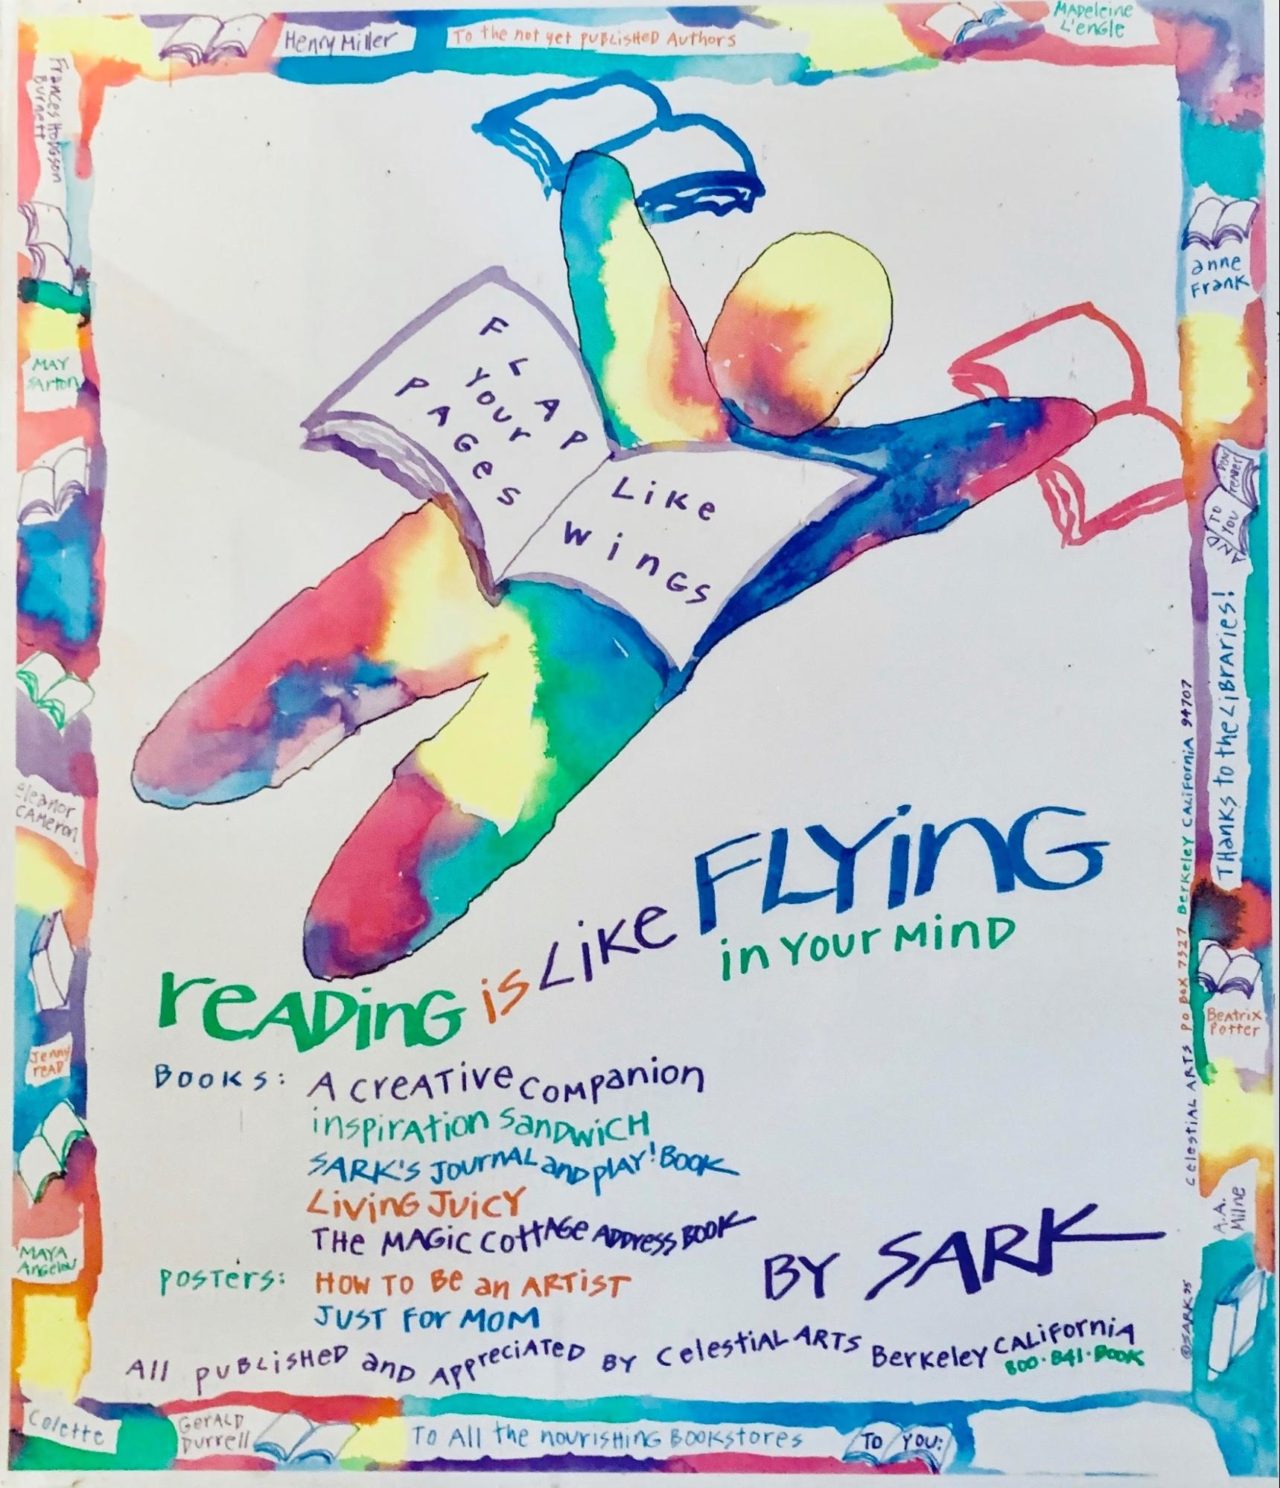 Henry Miller
To the not yet published Authors
Madeleine
L'engle
Frances Hodgson
Burnett
anne
Frank
MAY
Sarton
FLAP
YOUR
PAGES
Like
Wings
DEAR
reader
TO
YOU
Thanks to the Libraries!
eleanor
Cameron
reading is Like FLYING
in your Mind
Beatrix
Potter
Jenny
reAD
Books: A Creative Companion
inspiration sandwich
SARK'S Journal and play! Book
Living Juicy
The Magic Cottage Address Book
Posters: How to Be an Artist
Just for Mom
BY SARK
All published and Appreciated by Celestial Arts Berkeley California
800·841·BOOK
Celestial Arts PO Box 7327 Berkeley California 94707
A.A.
Milne
©SARK 95
MAYA
Angelou
Colette
Gerald
Durrell
To All the nourishing Bookstores
To You: